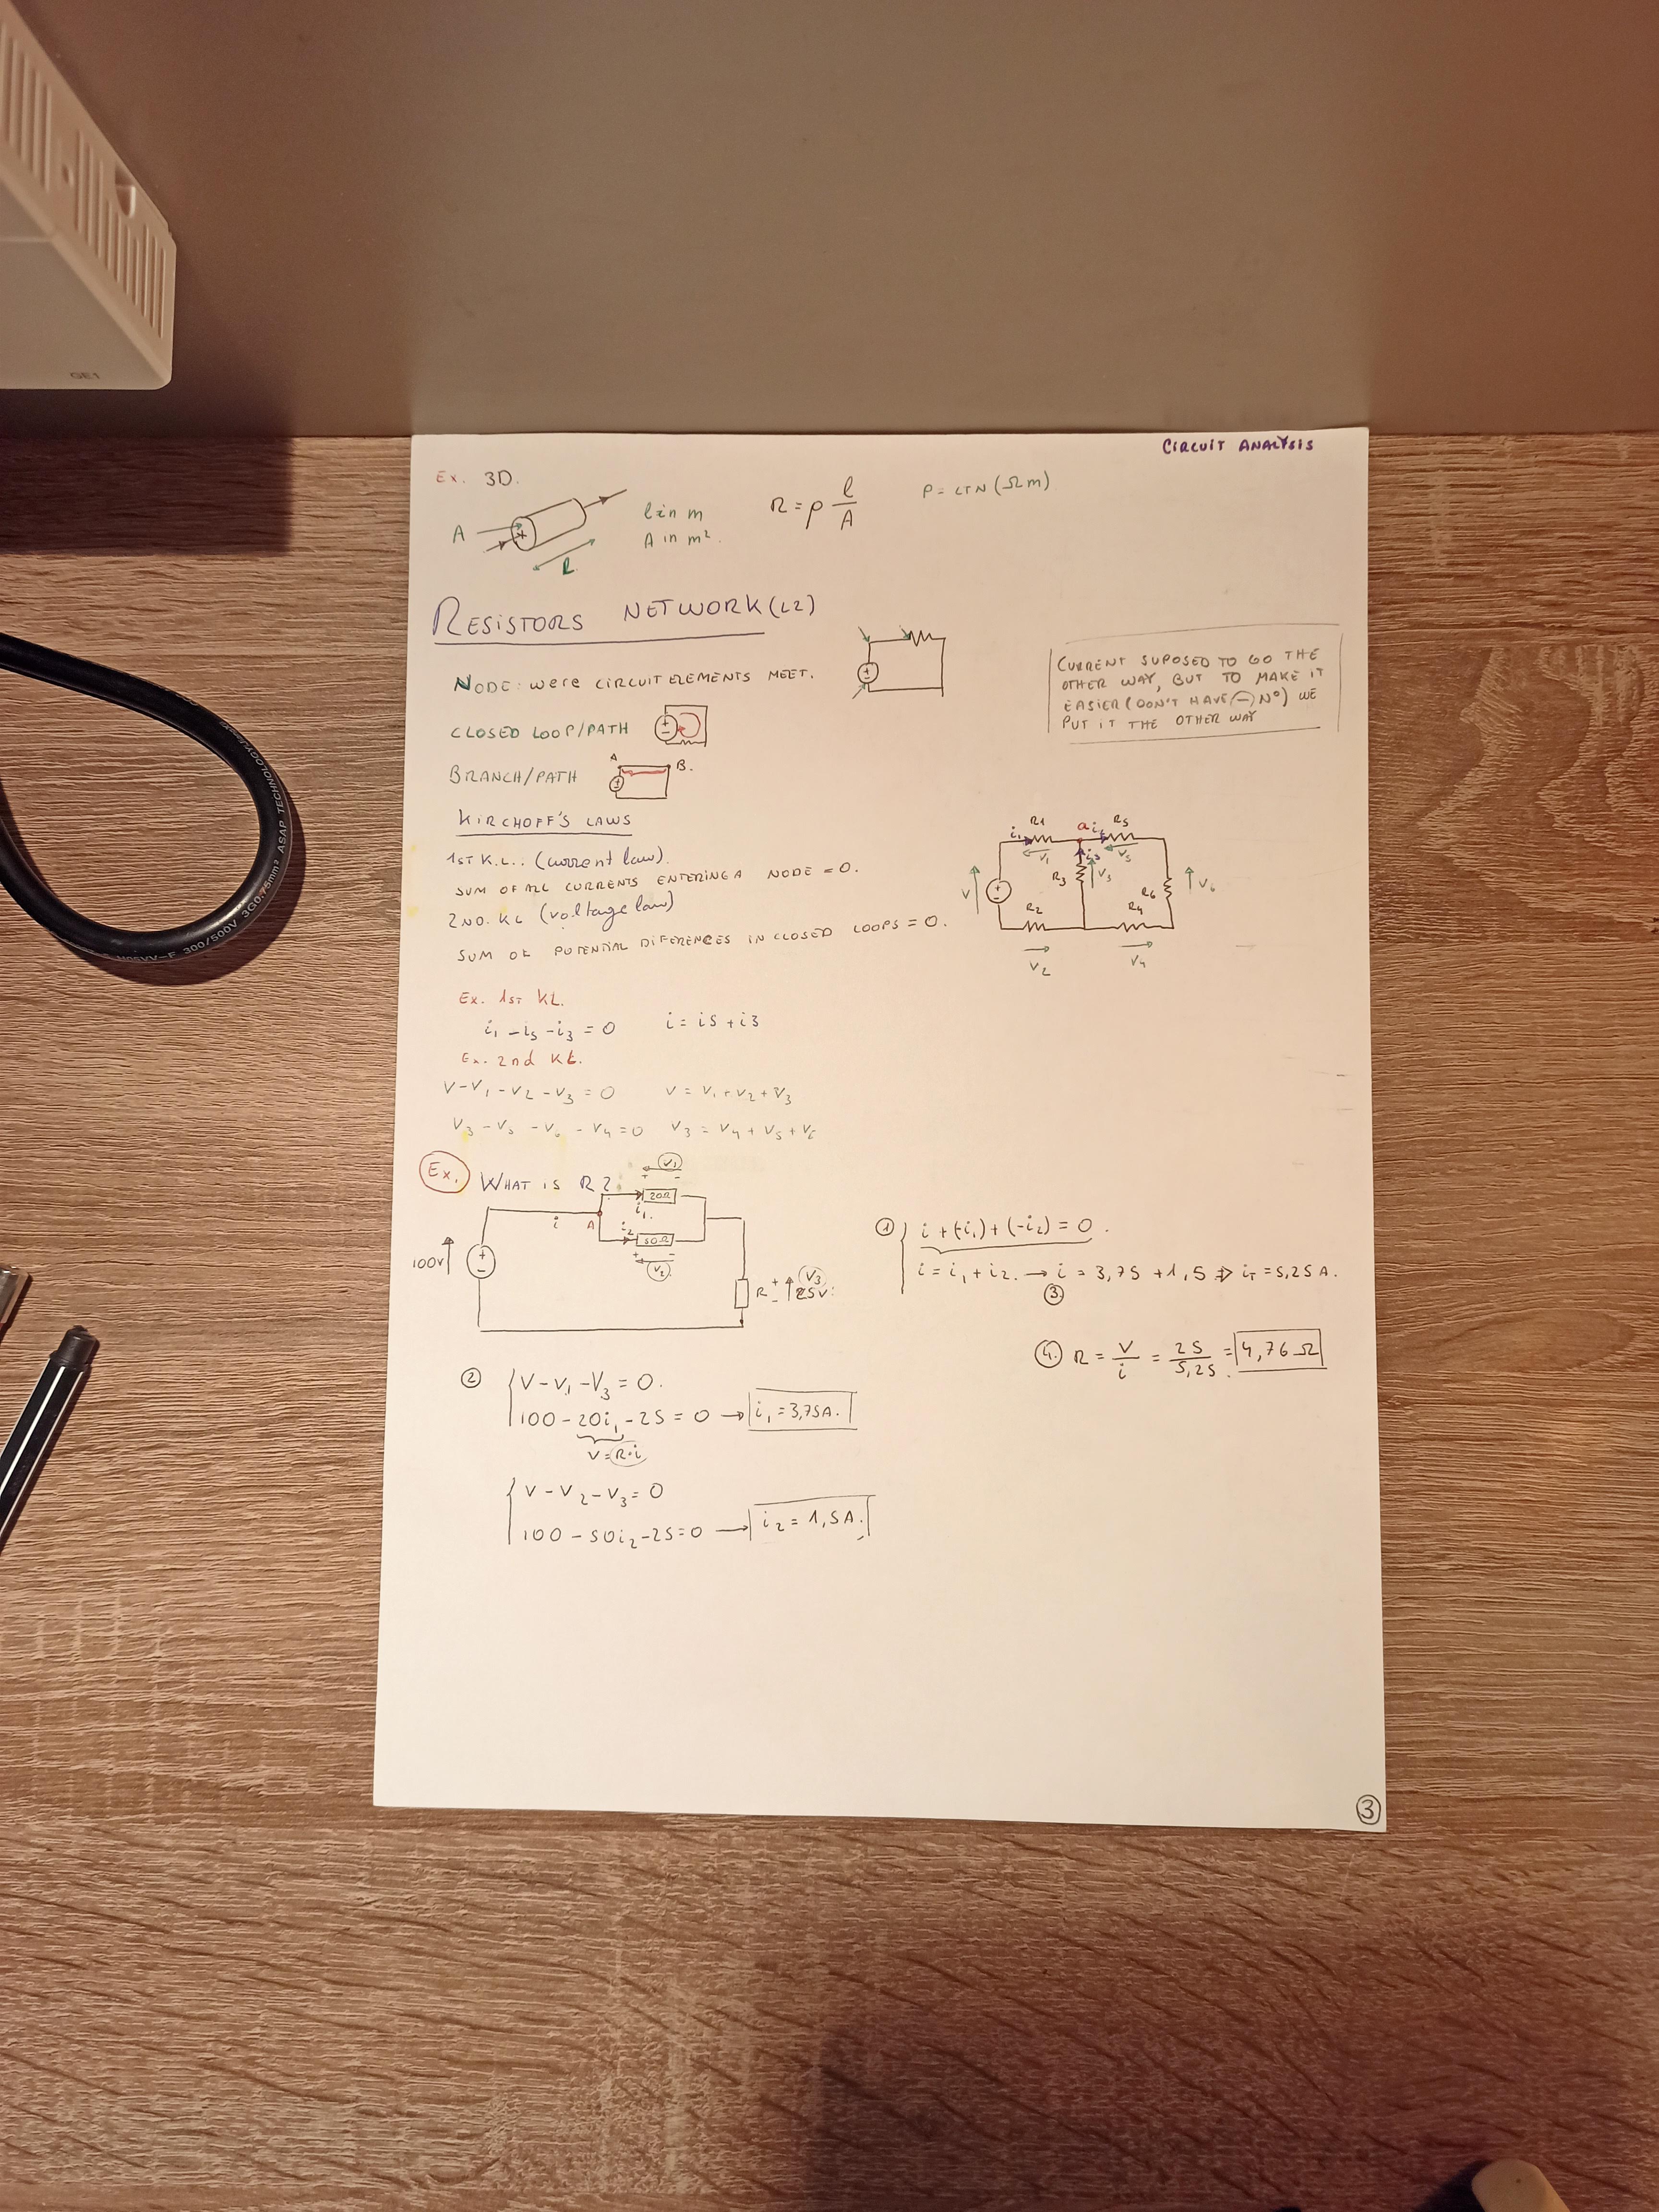 CIRCUIT ANALYSIS
Ex. 3D.
A
R
l in m
A in m².
R = ρ l/A
ρ = CTN (Ωm)
RESISTORS NETWORK (L2)
NODE: were CIRCUIT ELEMENTS MEET.
CURRENT SUPOSED TO GO THE
OTHER WAY, BUT TO MAKE IT
EASIER (DON'T HAVE (-) Nº) WE
PUT IT THE OTHER WAY
CLOSED LOOP/PATH
BRANCH/PATH
A B.
KIRCHOFF'S LAWS
1ST K.L.: (current law).
SUM OF ALL CURRENTS ENTERING A NODE = 0.
2ND. KL (voltage law)
SUM OF POTENTIAL DIFERENCES IN CLOSED LOOPS = 0.
R1 a R5
i1 V1 i3 V5
V R3 V3 R6 V6
R2 R4
V2 V4
Ex. 1ST KL.
i1 - i5 - i3 = 0 i = i5 + i3
Ex. 2nd KL.
V - V1 - V2 - V3 = 0 V = V1 + V2 + V3
V3 - V5 - V6 - V4 = 0 V3 = V4 + V5 + V6
Ex. WHAT IS R?
V1
+ -
20Ω
i A i1.
i2
50Ω
+ -
V2
100V + -
R + - V3
25V.
① i + (-i1) + (-i2) = 0.
i = i1 + i2. → i = 3,75 + 1,5 ⇒ iT = 5,25 A.
③
④. R = V/i = 25/5,25 = 4,76 Ω
② V - V1 - V3 = 0.
100 - 20i1 - 25 = 0 → i1 = 3,75A.
V = R·i
V - V2 - V3 = 0
100 - 50i2 - 25 = 0 → i2 = 1,5A.
③
GE1
300/500V 3G0.75mm² ASAP TECHNOLOGY